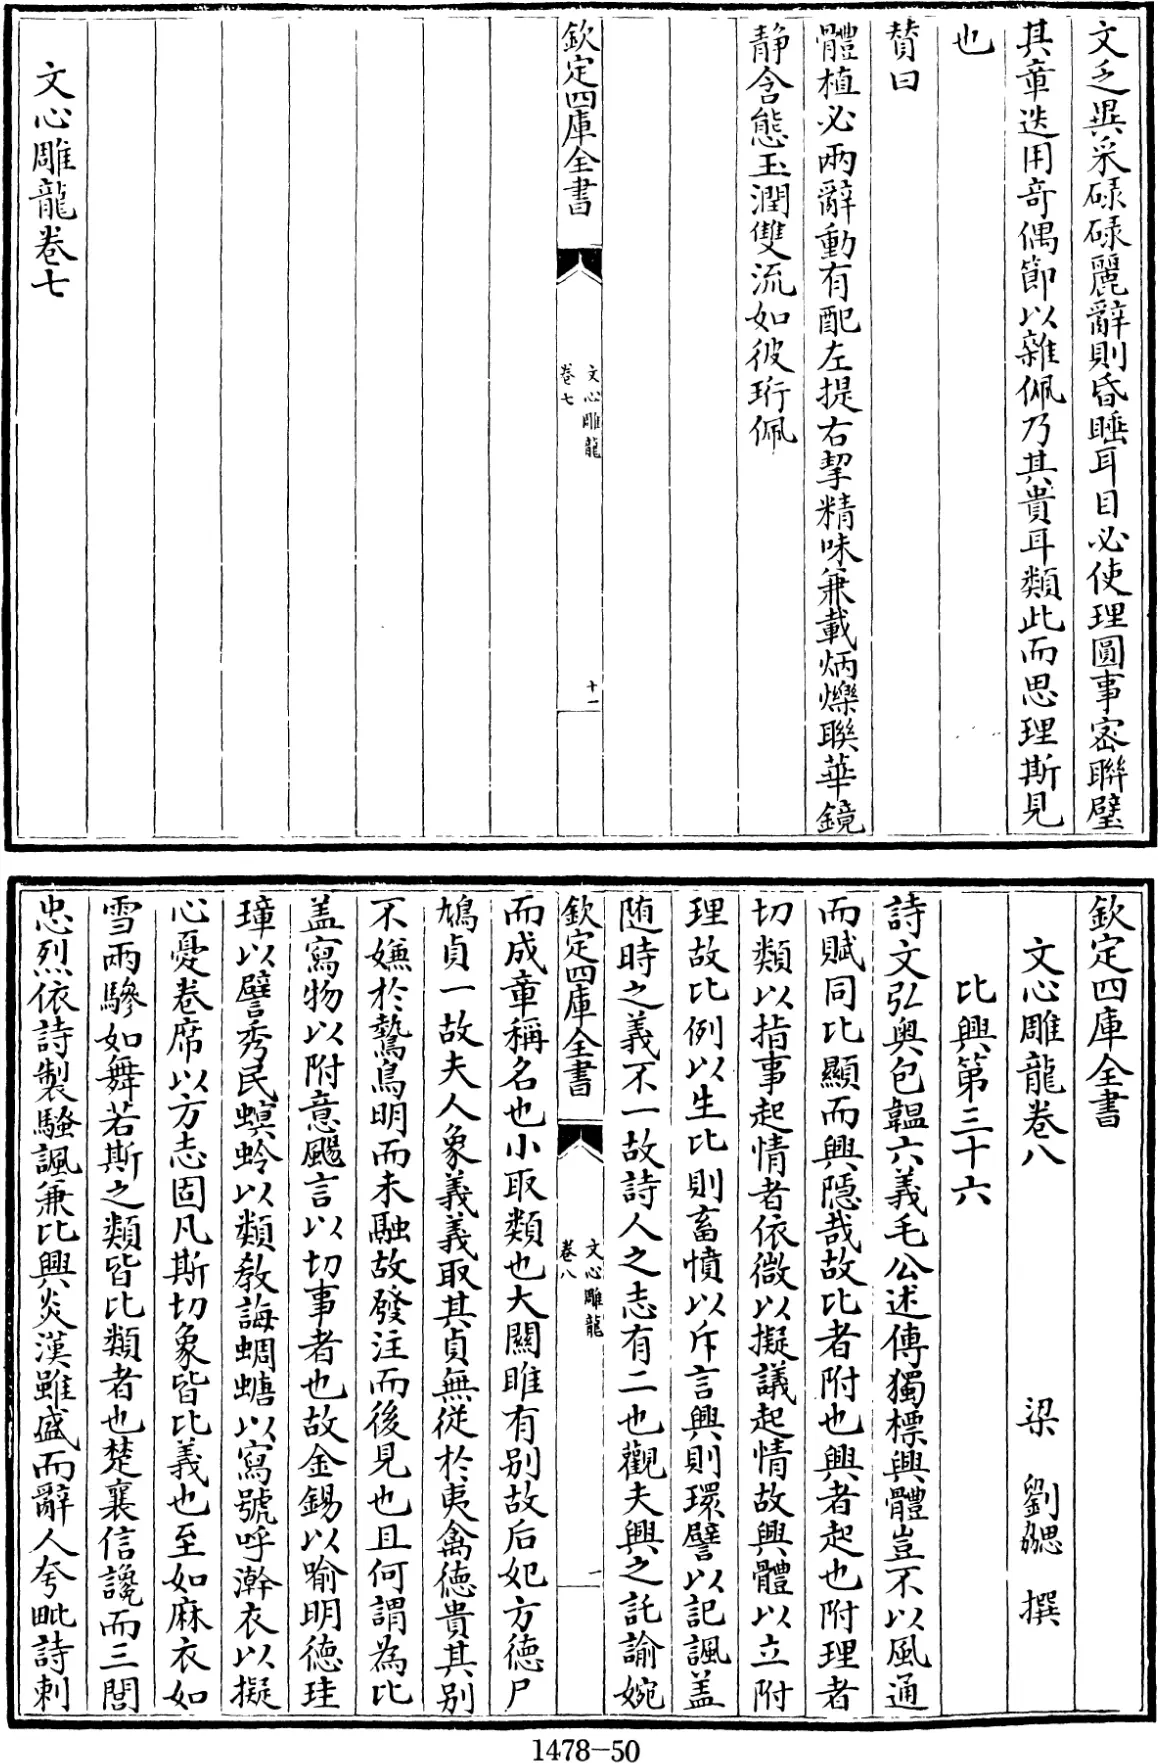 文乏異采碌碌麗辭則昏睡耳目必使理圓事密聯璧
其章迭用奇偶節以雜佩乃其貴耳類此而思理斯見
也
贊曰
體植必兩辭動有配左提右挈精味兼載炳爍聯華鏡
靜含態玉潤雙流如彼珩佩
欽定四庫全書
文心雕龍
卷七
十一
文心雕龍卷七
欽定四庫全書
文心雕龍卷八
梁 劉勰 撰
比興第三十六
詩文弘奧包韞六義毛公述傳獨標興體豈不以風通
而賦同比顯而興隱哉故比者附也興者起也附理者
切類以指事起情者依微以擬議起情故興體以立附
理故比例以生比則畜憤以斥言興則環譬以記諷盖
随時之義不一故詩人之志有二也觀夫興之託諭婉
欽定四庫全書
文心雕龍
卷八
一
而成章稱名也小取類也大關雎有别故后妃方德尸
鳩貞一故夫人象義義取其貞無從於夷禽德貴其别
不嫌於鷙鳥明而未融故發注而後見也且何謂為比
盖寫物以附意颺言以切事者也故金錫以喻明德珪
璋以譬秀民螟蛉以類教誨蜩螗以寫號呼澣衣以擬
心憂卷席以方志固凡斯切象皆比義也至如麻衣如
雪兩驂如舞若斯之類皆比類者也楚襄信讒而三閭
忠烈依詩製騷諷兼比興炎漢雖盛而辭人夸毗詩刺
1478-50